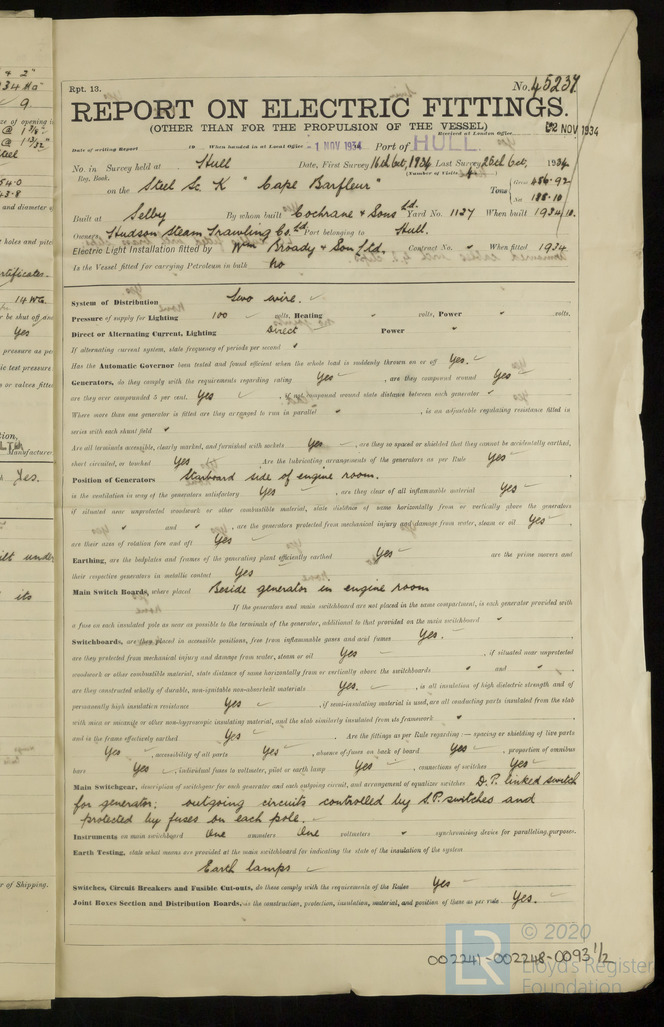 Rpt. 13. No. 45237
REPORT ON ELECTRIC FITTINGS.
(OTHER THAN FOR THE PROPULSION OF THE VESSEL)
Received at London Office
2 NOV 1934
Date of writing Report 19 When handed in at Local Office - 1 NOV 1934 Port of HULL
No. in Survey held at Hull Date, First Survey 16th Oct, 1934 Last Survey 26th Oct, 1934
Reg. Book. (Number of Visits 4)
on the Steel Sc K "Cape Barfleur" Tons { Gross 456.92
Net 188.10
Built at Selby By whom built Cochrane & Sons Ltd. Yard No. 1127 When built 1934.10.
Owners Hudson Steam Trawling Co. Ltd. Port belonging to Hull.
Electric Light Installation fitted by Wm Broady & Son Ltd. Contract No. " When fitted 1934
Is the Vessel fitted for carrying Petroleum in bulk No
System of Distribution Two wire.
Pressure of supply for Lighting 100 volts, Heating " volts, Power " volts.
Direct or Alternating Current, Lighting Direct Power "
If alternating current system, state frequency of periods per second "
Has the Automatic Governor been tested and found efficient when the whole load is suddenly thrown on or off Yes.
Generators, do they comply with the requirements regarding rating Yes , are they compound wound Yes
are they over compounded 5 per cent. Yes , if not compound wound state distance between each generator "
Where more than one generator is fitted are they arranged to run in parallel " , is an adjustable regulating resistance fitted in
series with each shunt field "
Are all terminals accessible, clearly marked, and furnished with sockets Yes , are they so spaced or shielded that they cannot be accidentally earthed,
short circuited, or touched Yes Are the lubricating arrangements of the generators as per Rule Yes
Position of Generators Starboard side of engine room.
is the ventilation in way of the generators satisfactory Yes , are they clear of all inflammable material Yes
if situated near unprotected woodwork or other combustible material, state distance of same horizontally from or vertically above the generators
" and " , are the generators protected from mechanical injury and damage from water, steam or oil Yes
are their axes of rotation fore and aft Yes
Earthing, are the bedplates and frames of the generating plant efficiently earthed Yes are the prime movers and
their respective generators in metallic contact Yes
Main Switch Boards, where placed Beside generator in engine room
If the generators and main switchboard are not placed in the same compartment, is each generator provided with
a fuse on each insulated pole as near as possible to the terminals of the generator, additional to that provided on the main switchboard "
Switchboards, are they placed in accessible positions, free from inflammable gases and acid fumes Yes.
are they protected from mechanical injury and damage from water, steam or oil Yes , if situated near unprotected
woodwork or other combustible material, state distance of same horizontally from or vertically above the switchboards " and "
are they constructed wholly of durable, non-ignitable non-absorbent materials Yes. , is all insulation of high dielectric strength and of
permanently high insulation resistance Yes , if semi-insulating material is used, are all conducting parts insulated from the slab
with mica or micanite or other non-hygroscopic insulating material, and the slab similarly insulated from its framework "
and is the frame effectively earthed Yes Are the fittings as per Rule regarding :— spacing or shielding of live parts
Yes , accessibility of all parts Yes , absence of fuses on back of board Yes , proportion of omnibus
bars Yes , individual fuses to voltmeter, pilot or earth lamp Yes , connections of switches Yes
Main Switchgear, description of switchgear for each generator and each outgoing circuit, and arrangement of equalizer switches D.P. linked switch
for generator: outgoing circuits controlled by S.P. switches and
protected by fuses on each pole.
Instruments on main switchboard One ammeters One voltmeters " synchronising device for paralleling purposes.
Earth Testing, state what means are provided at the main switchboard for indicating the state of the insulation of the system
Earth lamps
Switches, Circuit Breakers and Fusible Cut-outs, do these comply with the requirements of the Rules Yes
Joint Boxes Section and Distribution Boards, is the construction, protection, insulation, material, and position of these as per rule Yes.
002241-002248-0093 1/2
© 2020
LR
Lloyd's Register
Foundation